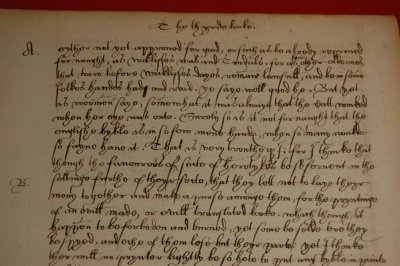 The thyrde boke.
A. eyther not yet approued for good, or such as be alredy reproued
for naught, as Wikliffes was and Tindals. for as for other olde ones
that were before Wikliffes dayes, remayne lawfull, and be in some
folkes handes had and read. ye saye well quod he. But yet
as woomen saye, somewhat it was alwaye that the catt winked
when her eye was oute. Surely so is it not for naught that the
englishe byble is in so fewe mens handes, when so many woulde
so fayne haue it. That is very trouthe q I: for I thinke that
though the fauourers of a secte of heretykes be so feruent in the
B. setting furthe of theyr secte, that they lett not to laye theyr
mony together and make a purse amonge them, for the pryntynge
of an euill made, or euill translated booke. which though it
happen to be forboden and burned, yet some be solde ere they
be spyed, and eche of them lose but theyr parte. yet I thinke
ther will no prynter lightly be so hote to putt any byble in prynte